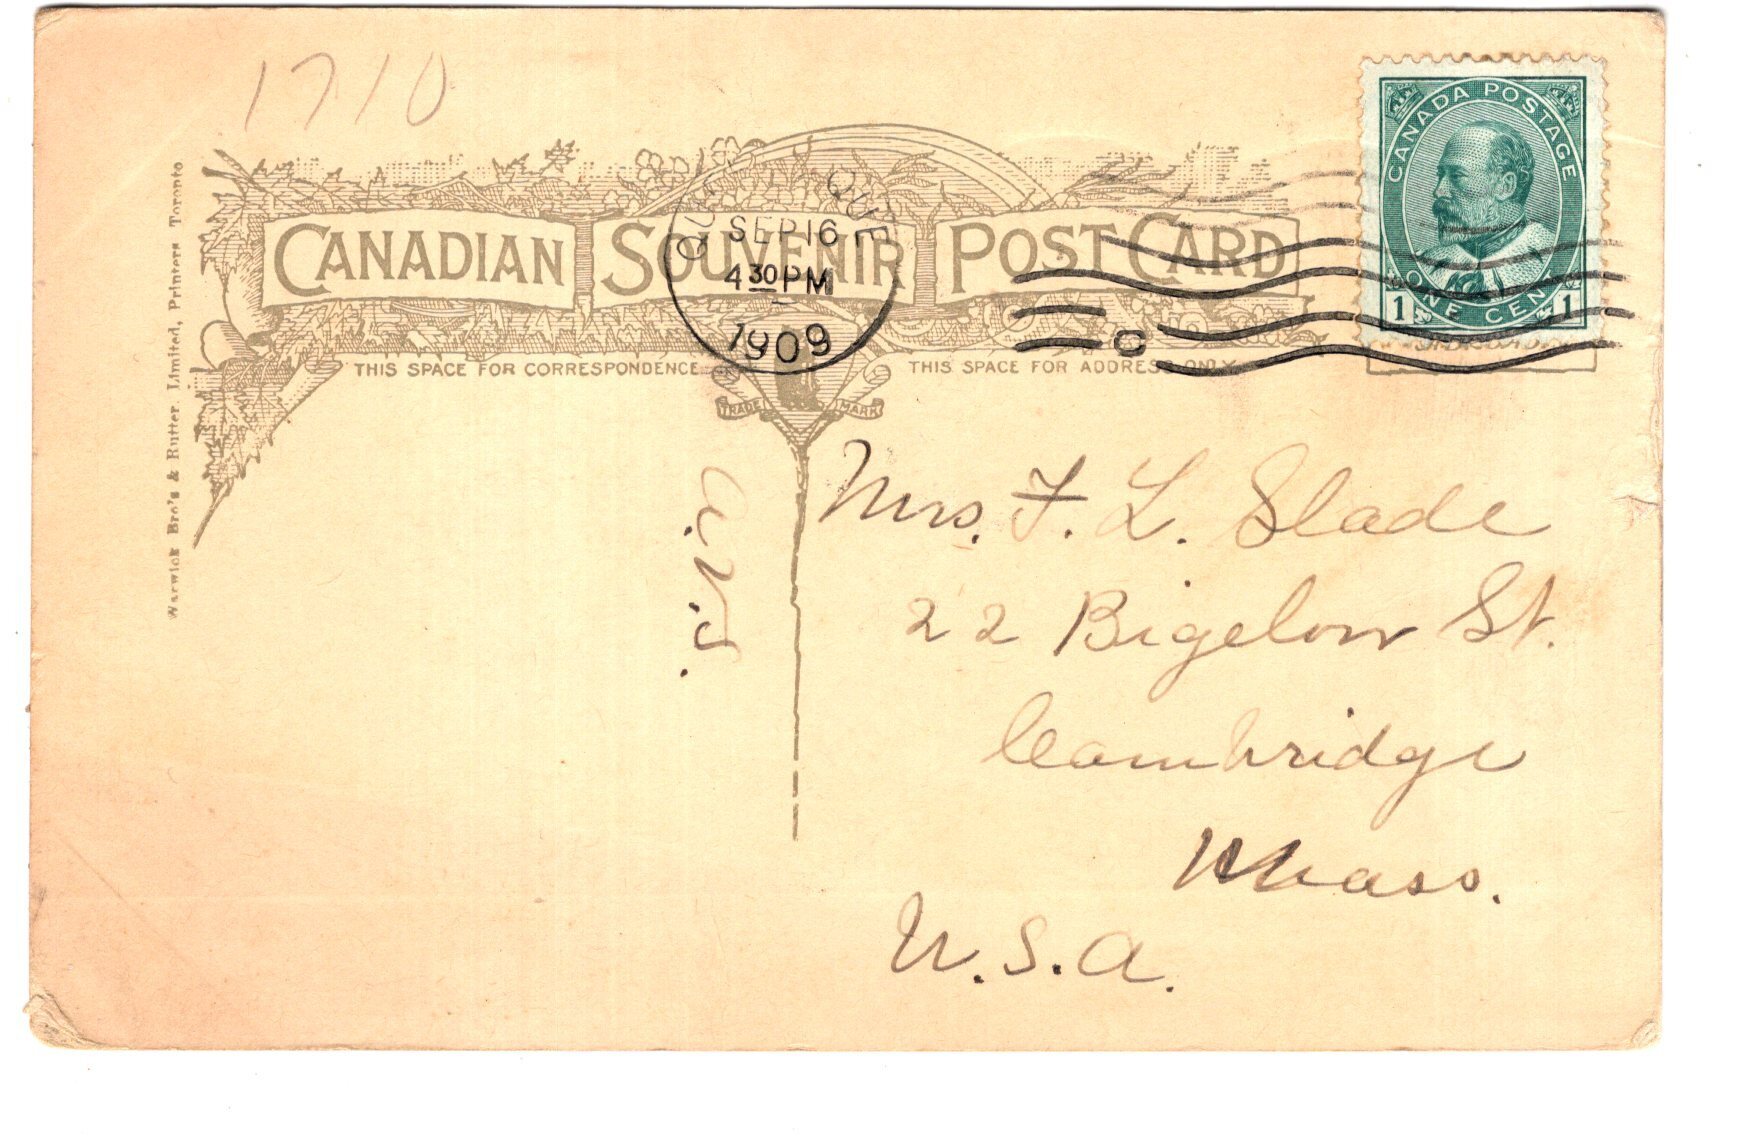 1710
CANADIAN SOUVENIR POST CARD
CANADA POSTAGE
ONE CENT
1 1
QUE
SEP 16
4 30 PM
1909
THIS SPACE FOR CORRESPONDENCE
THIS SPACE FOR ADDRESS ONLY
TRADE MARK
Warwick Bro's & Rutter, Limited, Printers, Toronto
Mrs. F. L. Slade
22 Bigelow St.
Cambridge
Mass.
U.S.A.